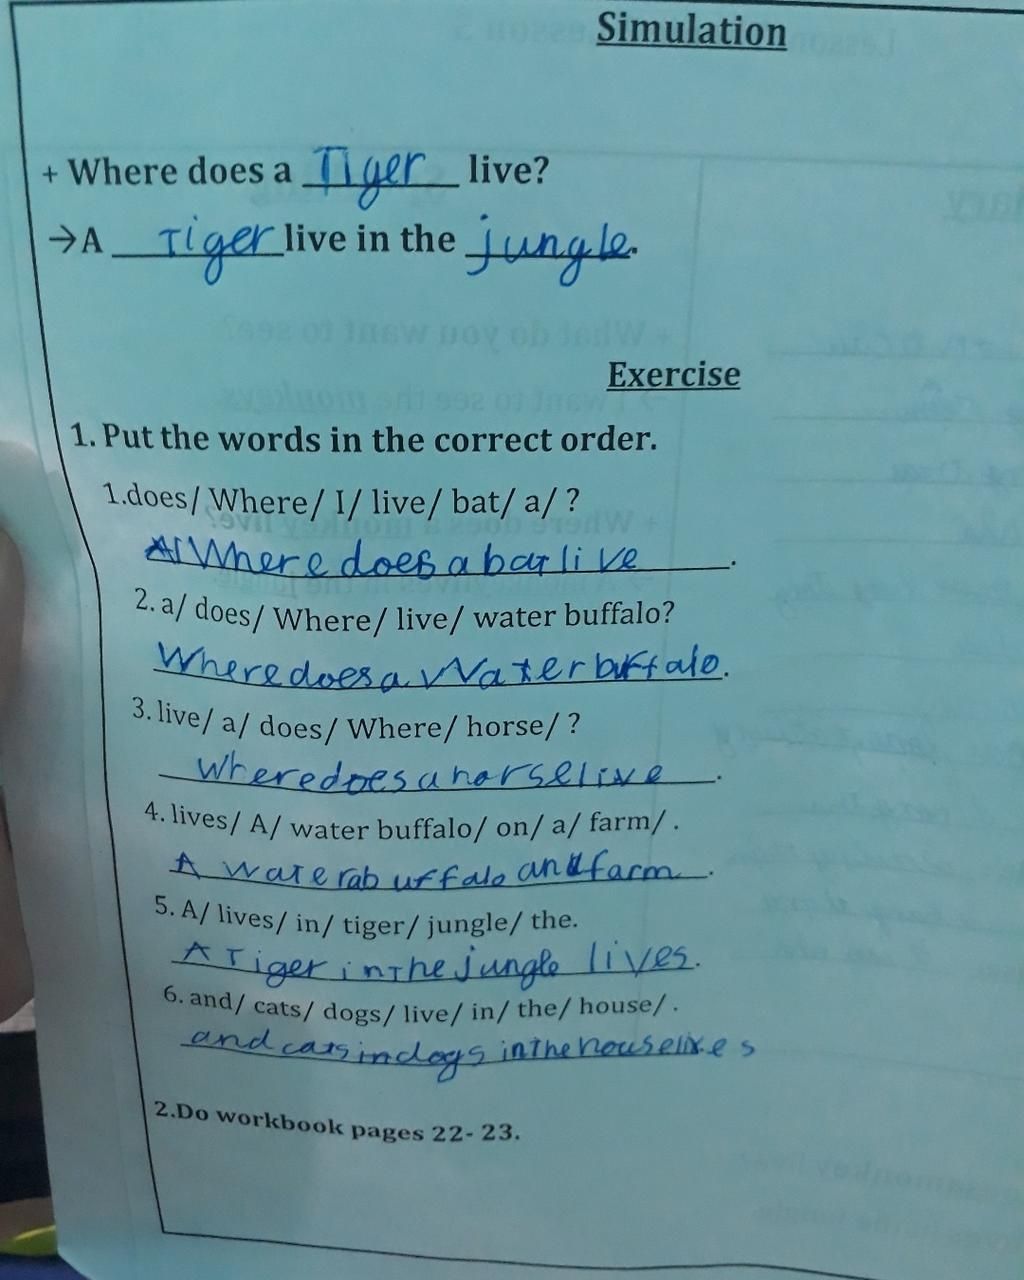 Simulation
+ Where does a Tiger live?
→A Tiger live in the jungle.
Exercise
1. Put the words in the correct order.
1.does/ Where/ I/ live/ bat/ a/ ?
Where does a bat live.
2. a/ does/ Where/ live/ water buffalo?
Where does a Water buffalo.
3. live/ a/ does/ Where/ horse/ ?
Where does a horse live.
4. lives/ A/ water buffalo/ on/ a/ farm/ .
A water abuffalo and farm.
5. A/ lives/ in/ tiger/ jungle/ the.
A Tiger in The jungle lives.
6. and/ cats/ dogs/ live/ in/ the/ house/ .
and cats in dogs in The house lives
2.Do workbook pages 22- 23.